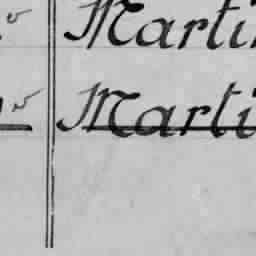 Marti
Marti